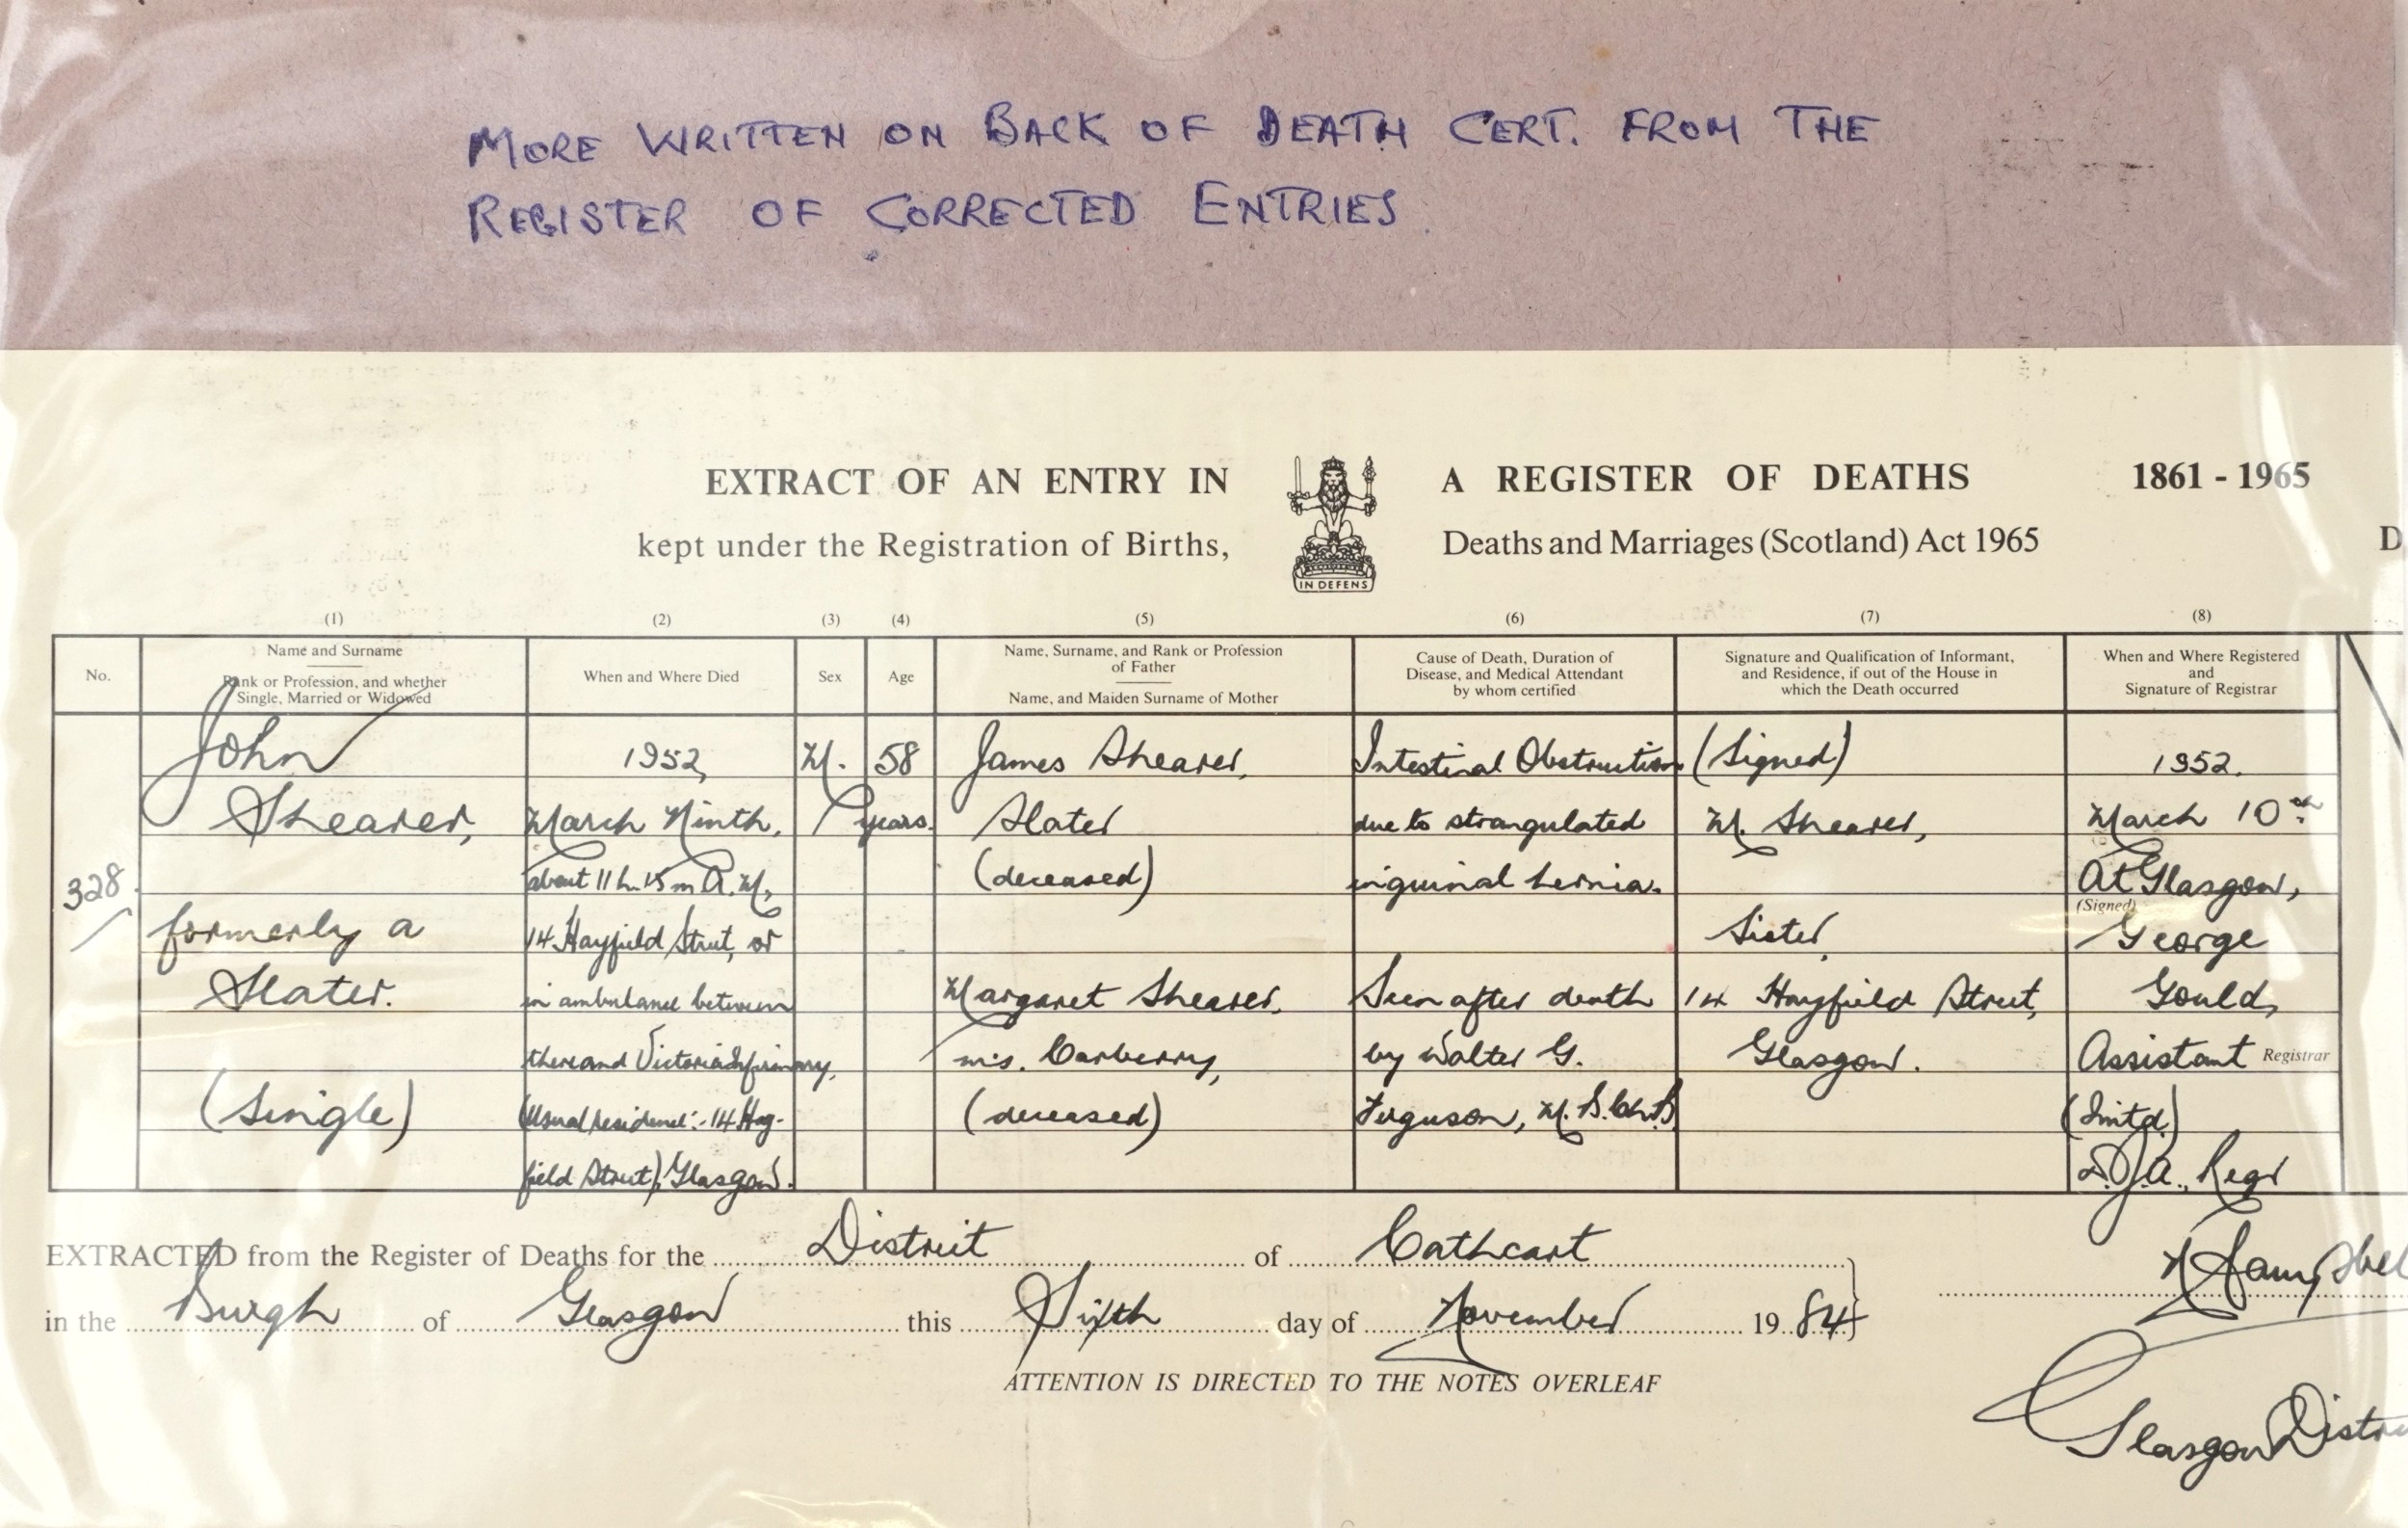 MORE WRITTEN ON BACK OF DEATH CERT. FROM THE
REGISTER OF CORRECTED ENTRIES.
EXTRACT OF AN ENTRY IN A REGISTER OF DEATHS 1861 - 1965
kept under the Registration of Births, Deaths and Marriages (Scotland) Act 1965
D
IN DEFENS
(1) (2) (3) (4) (5) (6) (7) (8)
No.
Name and Surname
Rank or Profession, and whether
Single, Married or Widowed
When and Where Died
Sex
Age
Name, Surname, and Rank or Profession
of Father
Name, and Maiden Surname of Mother
Cause of Death, Duration of
Disease, and Medical Attendant
by whom certified
Signature and Qualification of Informant,
and Residence, if out of the House in
which the Death occurred
When and Where Registered
and
Signature of Registrar
328
John
Shearer,
formerly a
Slater.
(Single)
1952,
March Ninth,
about 11 h. 15 m A.M.,
14 Hayfield Street, or
in ambulance between
there and Victoria Infirmary,
(Usual residence:- 14 Hay-
field Street), Glasgow.
M.
58
years.
James Shearer,
Slater
(deceased)
Margaret Shearer,
m.s. Carberry,
(deceased)
Intestinal Obstruction
due to strangulated
inguinal hernia.
Seen after death
by Walter G.
Ferguson, M.B.Ch.B.
(Signed)
M. Shearer,
Sister,
14 Hayfield Street,
Glasgow.
1952.
March 10th
At Glasgow,
(Signed)
George
Gould,
Assistant Registrar
(Intd.)
D.J.A., Regr
EXTRACTED from the Register of Deaths for the District of Cathcart
in the Burgh of Glasgow this Sixth day of November 19 84
ATTENTION IS DIRECTED TO THE NOTES OVERLEAF
Glasgow Distri